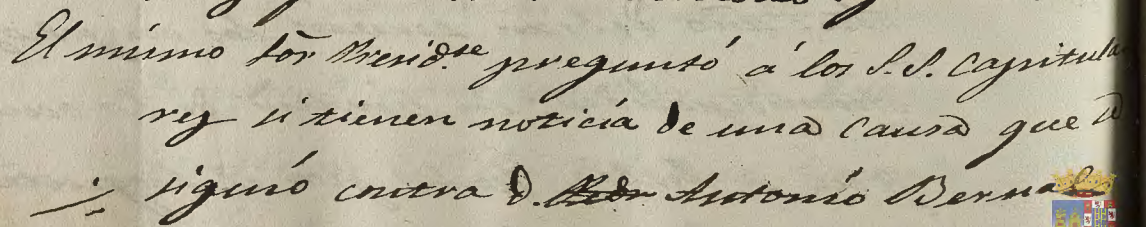 El mismo Sor Presid.te preguntó á los S.S. Capitula
res si tienen noticia de una causa que se
siguió contra D. Antonio Bernal